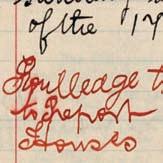 of the 17
Routledge t
to report
Houses